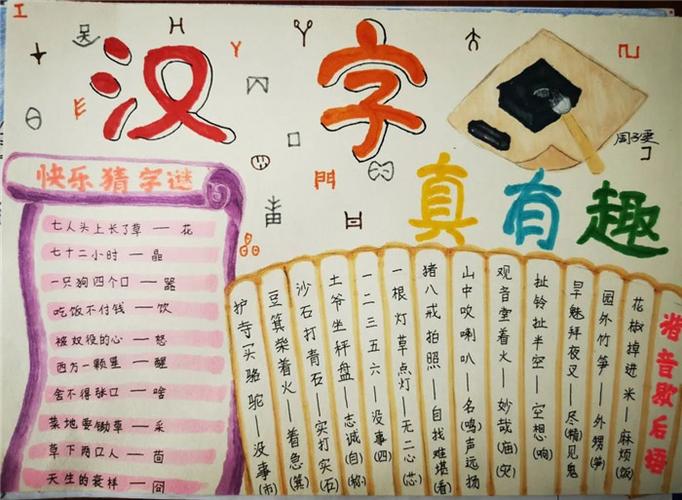 汉字
真有趣
快乐猜字谜
七人头上长了草 — 花
七十二小时 — 晶
一只狗四个口 — 器
吃饭不付钱 — 饮
被奴役的心 — 怒
西方一颗星 — 醒
舍不得张口 — 啥
菜地要锄草 — 采
草下两口人 — 茴
天生的衰样 — 冏
谐音歇后语
花椒掉进米——麻烦(饭)
园外竹笋——外甥(笋)
旱魅拜夜叉——尽(精)见鬼
扯铃扯半空——空想(响)
观音堂着火——妙哉(庙)(灾)
山中吹喇叭——名(鸣)声远扬
猪八戒拍照——自找难堪(看)
一根灯草点灯——无二心(芯)
一二三五六——没事(四)
土爷坐秤盘——志诚(自)(称)
沙石打青石——实打实(石)
豆箕柴着火——着急(箕)
护寺一头骆驼——没事(市)